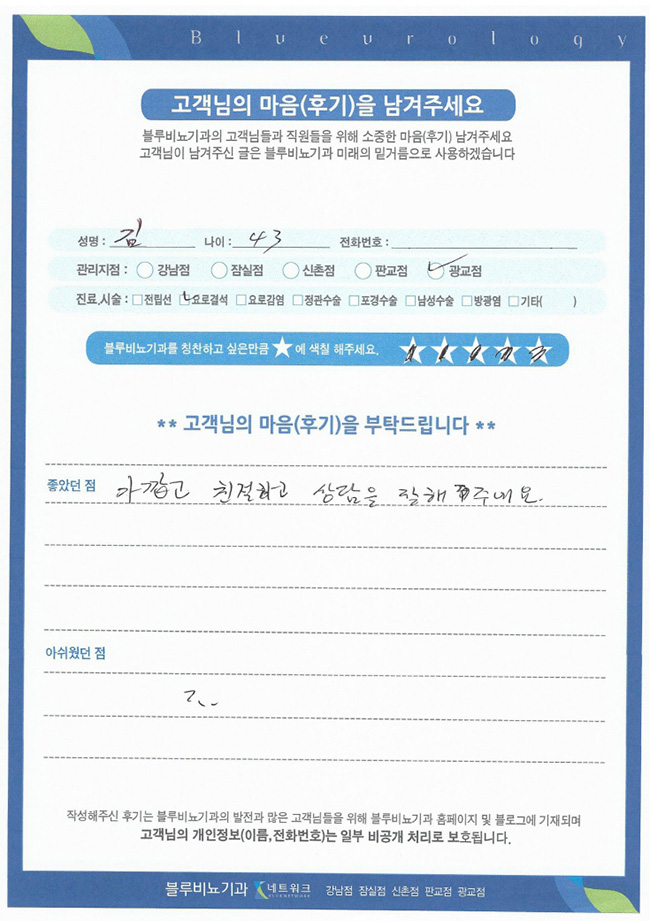 Blueurology
고객님의 마음(후기)을 남겨주세요
블루비뇨기과의 고객님들과 직원들을 위해 소중한 마음(후기) 남겨주세요
고객님이 남겨주신 글은 블루비뇨기과 미래의 밑거름으로 사용하겠습니다
성명 : 김 나이 : 43 전화번호 :
관리지점 : 강남점 잠실점 신촌점 판교점 광교점
진료,시술 : 전립선 요로결석 요로감염 정관수술 포경수술 남성수술 방광염 기타( )
블루비뇨기과를 칭찬하고 싶은만큼 ★에 색칠 해주세요.
** 고객님의 마음(후기)을 부탁드립니다 **
좋았던 점 가깝고 친절하고 상담을 잘해 주네요.
아쉬웠던 점
작성해주신 후기는 블루비뇨기과의 발전과 많은 고객님들을 위해 블루비뇨기과 홈페이지 및 블로그에 기재되며
고객님의 개인정보(이름,전화번호)는 일부 비공개 처리로 보호됩니다.
블루비뇨기과 네트워크 BLUENETWORK 강남점 잠실점 신촌점 판교점 광교점